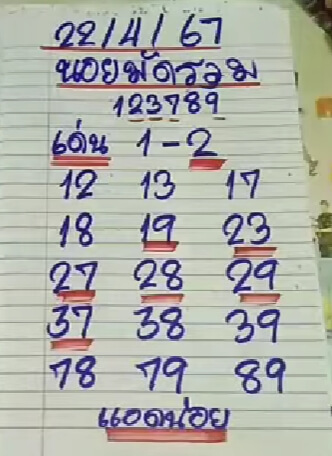 22/4/67
นอยมัดรวม
123789
เด่น 1-2
12 13 17
18 19 23
27 28 29
37 38 39
78 79 89
แอดน่อย